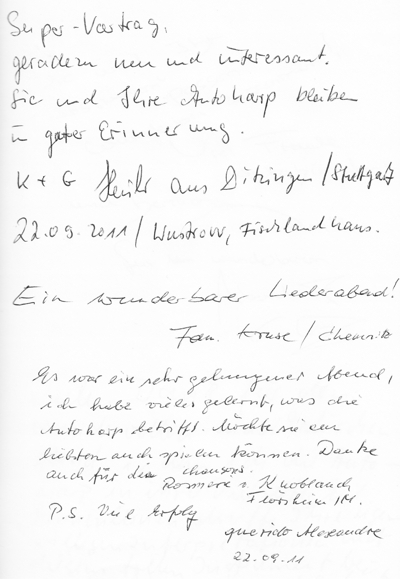 Super-Vortrag,
geradezu neu und interessant.
Sie und Ihre Autoharp bleiben
in guter Erinnerung.
K + G aus Ditzingen / Stuttgart
22.09.2011 / Wustrow, Fischlandhaus.
Ein wunderbarer Liederabend!
Fam. Kruse / Chemnitz
Es war ein sehr gelungener Abend,
ich habe vieles gelernt, was die
Autoharp betrifft. Möchte sie am
liebsten auch spielen können. Danke
auch für die chansons.
Rosmarie v. Knoblauch
Flörsheim /M.
P.S. Viel Erfolg
querido Alexandre
22.09.11